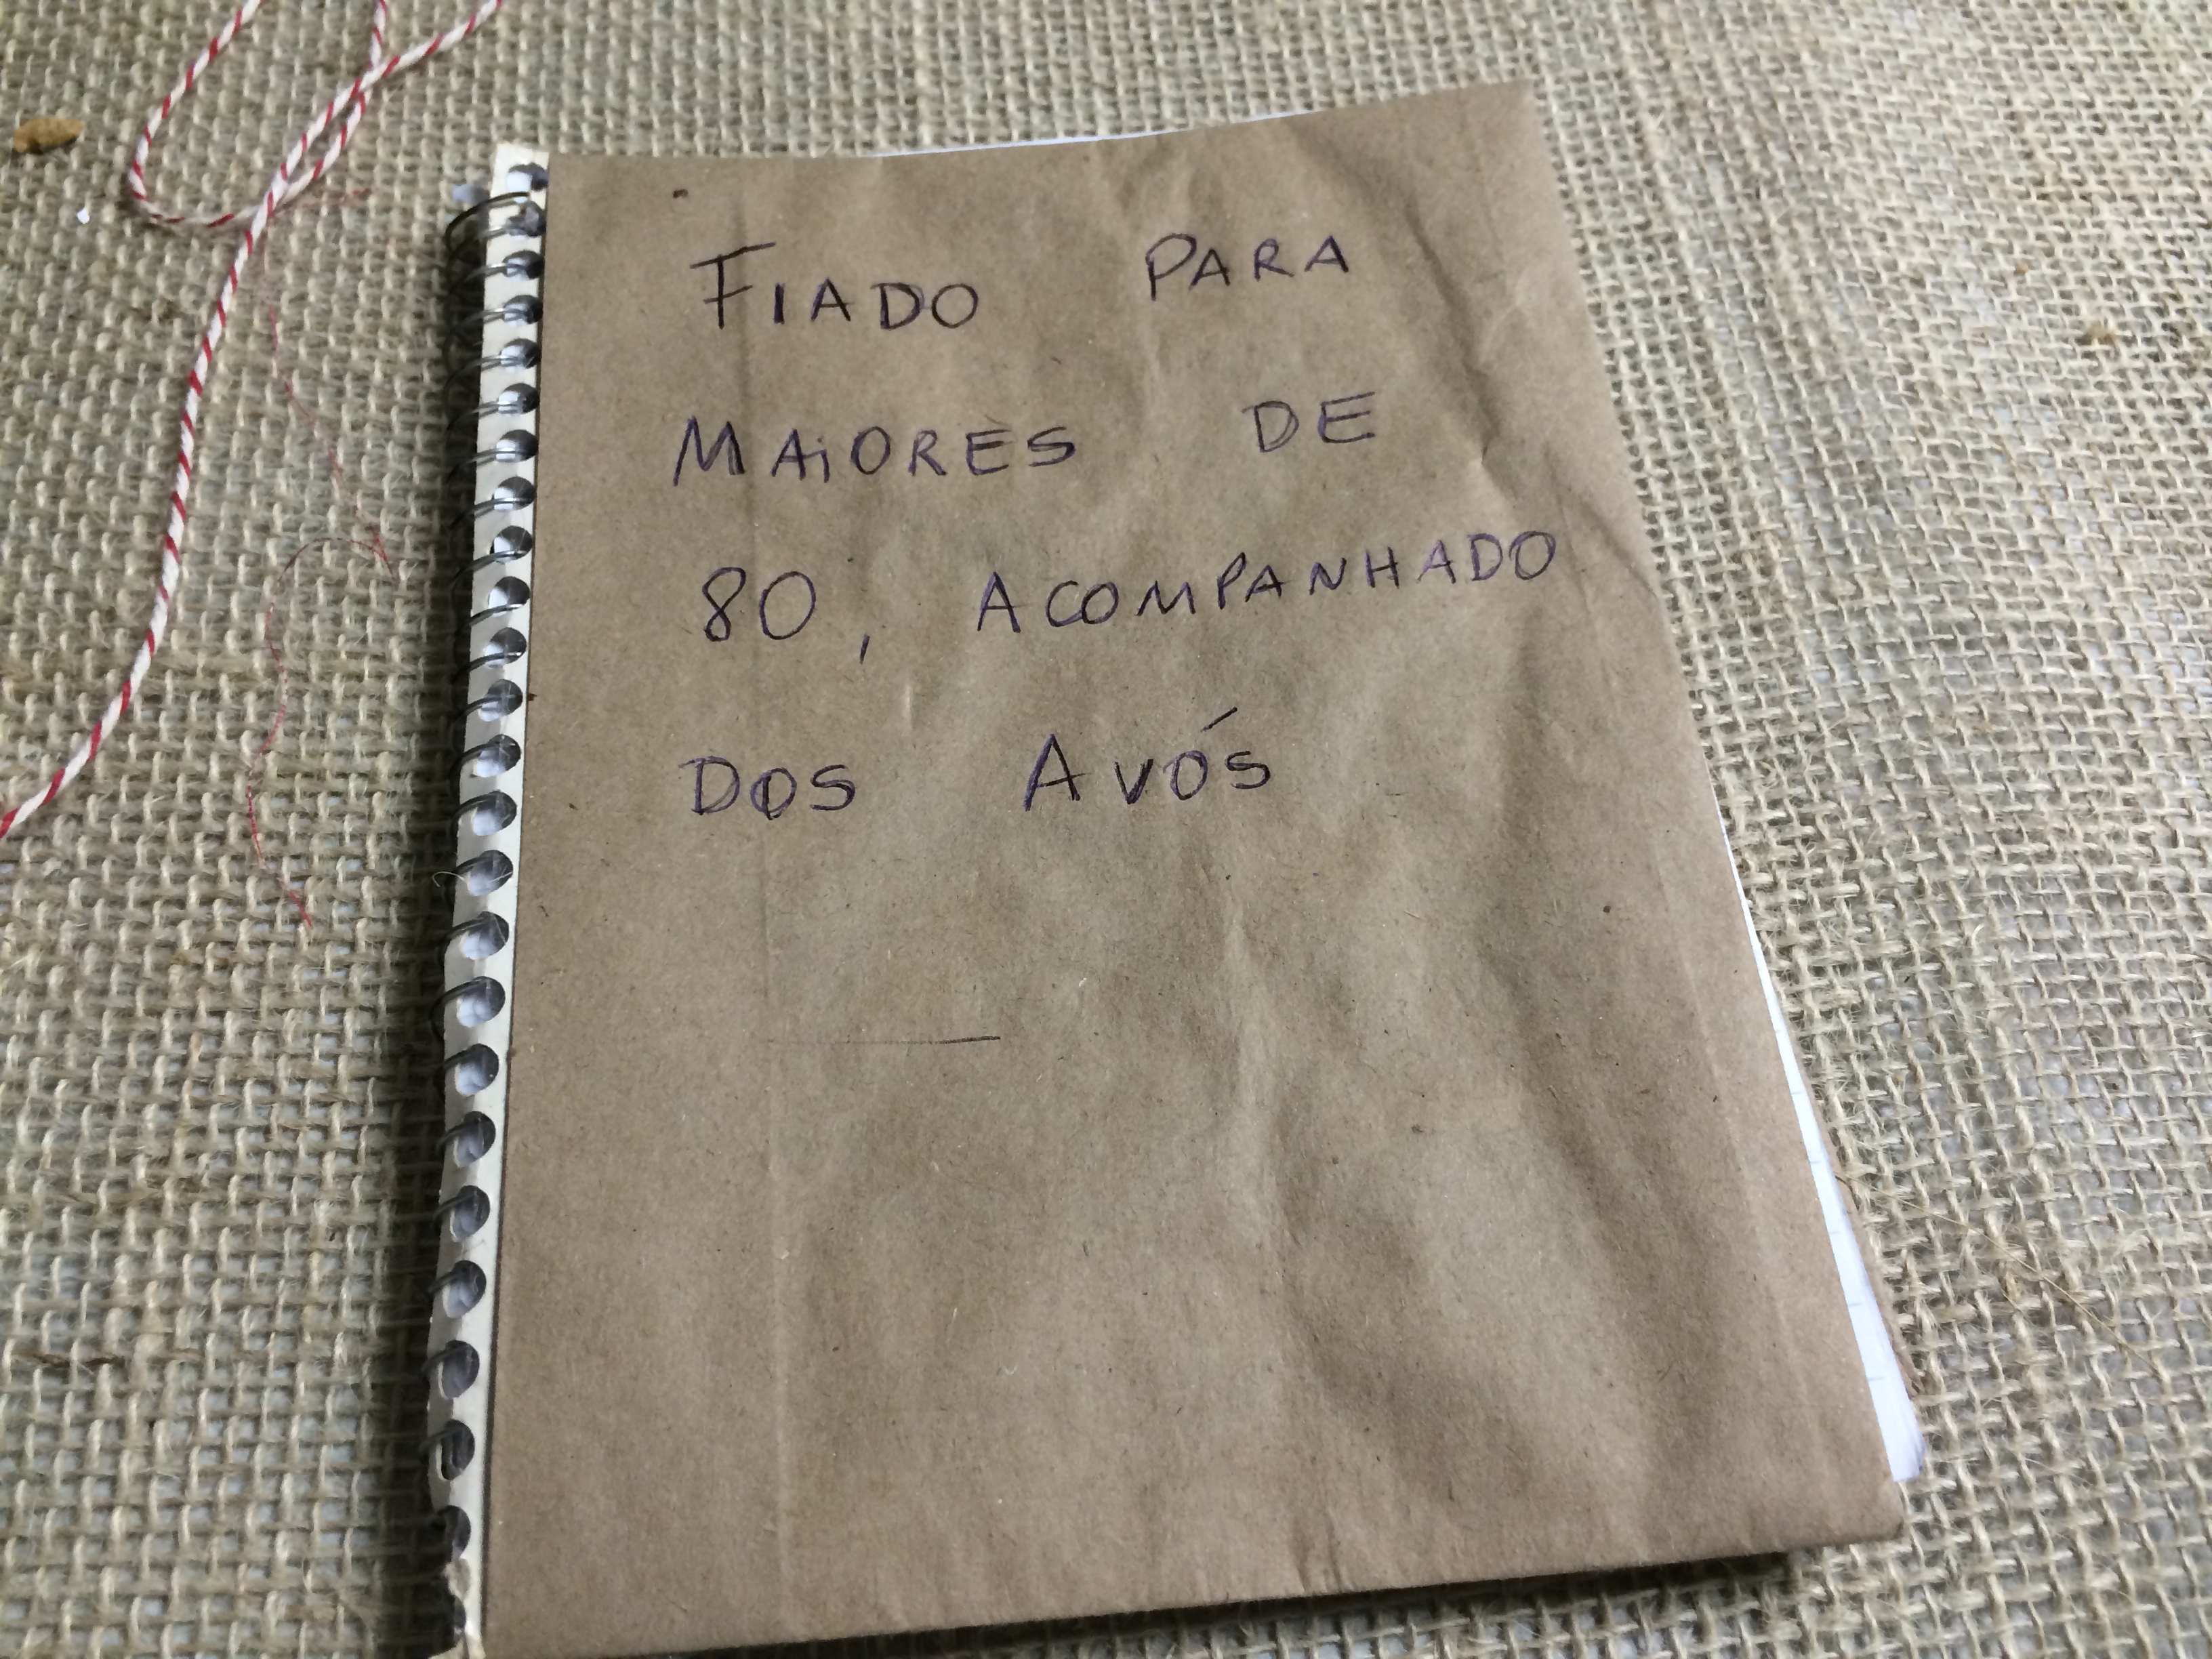 FIADO PARA
MAIORES DE
80, ACOMPANHADO
DOS AVÓS